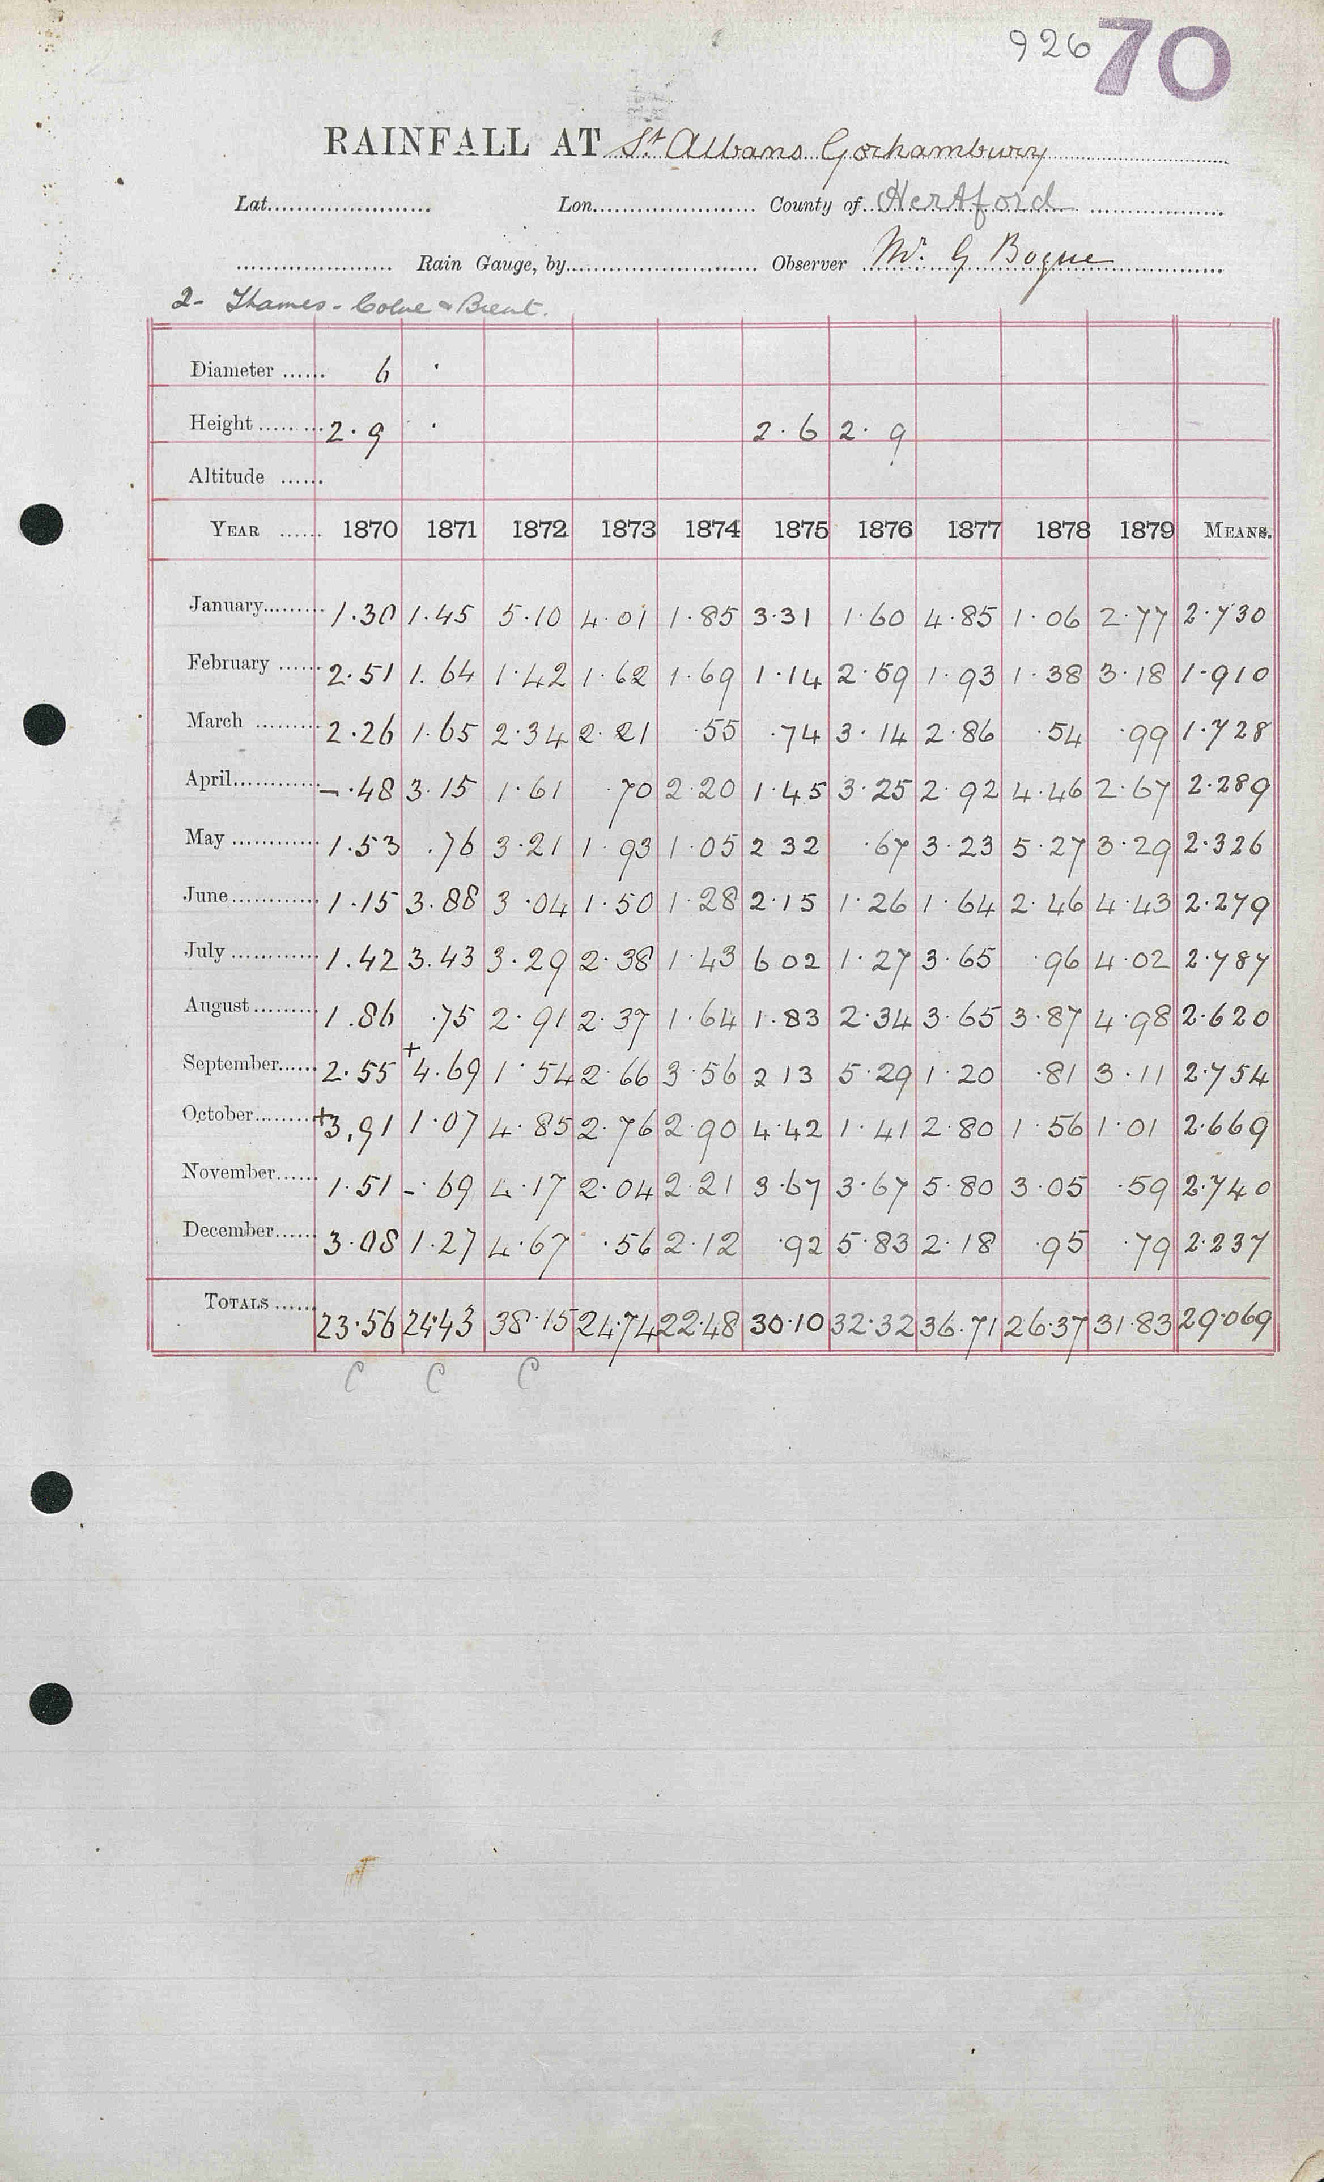 926 70
RAINFALL AT St. Albans Gorhambury
Lat. Lon. County of Hertford
Rain Gauge, by Observer Mr. G Bogue
2- Thames - Colne & Brent.
Diameter 6 .
Height 2.9 . 2.6 2.9
Altitude
YEAR 1870 1871 1872 1873 1874 1875 1876 1877 1878 1879 MEANS.
January 1.30 1.45 5.10 4.01 1.85 3.31 1.60 4.85 1.06 2.77 2.730
February 2.51 1.64 1.42 1.62 1.69 1.14 2.59 1.93 1.38 3.18 1.910
March 2.26 1.65 2.34 2.21 .55 .74 3.14 2.86 .54 .99 1.728
April - .48 3.15 1.61 .70 2.20 1.45 3.25 2.92 4.46 2.67 2.289
May 1.53 .76 3.21 1.93 1.05 2 32 .67 3.23 5.27 3.29 2.326
June 1.15 3.88 3.04 1.50 1.28 2.15 1.26 1.64 2.46 4.43 2.279
July 1.42 3.43 3.29 2.38 1.43 6 02 1.27 3.65 .96 4.02 2.787
August 1.86 .75 2.91 2.37 1.64 1.83 2.34 3.65 3.87 4.98 2.620
September 2.55 +4.69 1.54 2.66 3.56 2 13 5.29 1.20 .81 3.11 2.754
October +3.91 1.07 4.85 2.76 2.90 4.42 1.41 2.80 1.56 1.01 2.669
November 1.51 - .69 4.17 2.04 2.21 3.67 3.67 5.80 3.05 .59 2.740
December 3.08 1.27 4.67 .56 2.12 .92 5.83 2.18 .95 .79 2.237
TOTALS 23.56 24.43 38.15 24.74 22.48 30.10 32.32 36.71 26.37 31.83 29.069
C C C